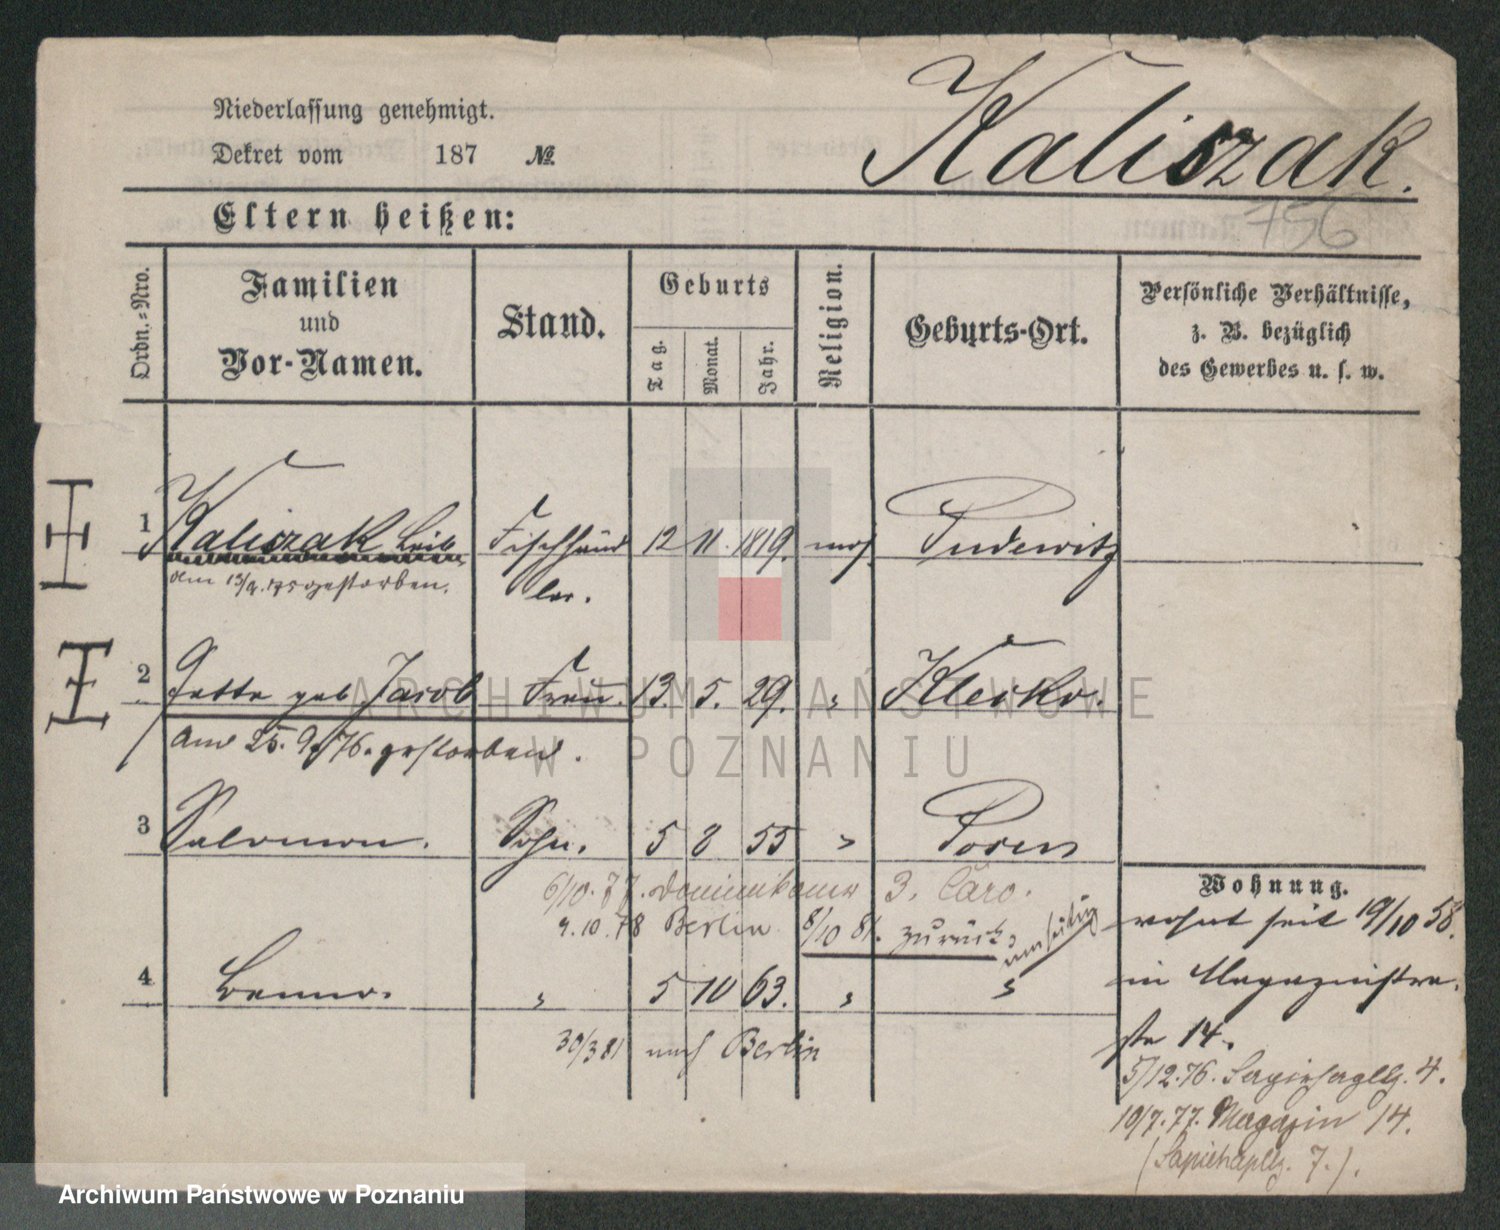 Niederlassung genehmigt.
Dekret vom 187 №
Kaliszak.
756
Eltern heißen:
Ordn.-Nro.
Familien
und
Vor-Namen.
Stand.
Geburts
Tag.
Monat.
Jahr.
Religion.
Geburts-Ort.
Persönliche Verhältnisse,
z. B. bezüglich
des Gewerbes u. s. w.
1 Kaliszak Leib Fischhänd 12 11. 1819. mos. Pudewitz
am 13/9. 75 gestorben. ler.
2 Jette geb Jacob Frau. 13. 5. 29. " Klecko.
am 25. 9. 76. gestorben.
3 Salomon. Sohn. 5 8 55 " Posen
6/10. 77. Dominikaner 3. Caro.
9.10.78 Berlin 8/10 81. zurück.
umseitig
4 Benno. " 5 10 63. " "
30/3 81 nach Berlin
Wohnung.
wohnt seit 19/10 58.
in Magazinstra
ße 14.
5/12.76. Sapiehapltz. 4.
10/7.77. Magazin 14.
(Sapiehaplatz. 7.).
ARCHIWUM PAŃSTWOWE
W POZNANIU
Archiwum Państwowe w Poznaniu